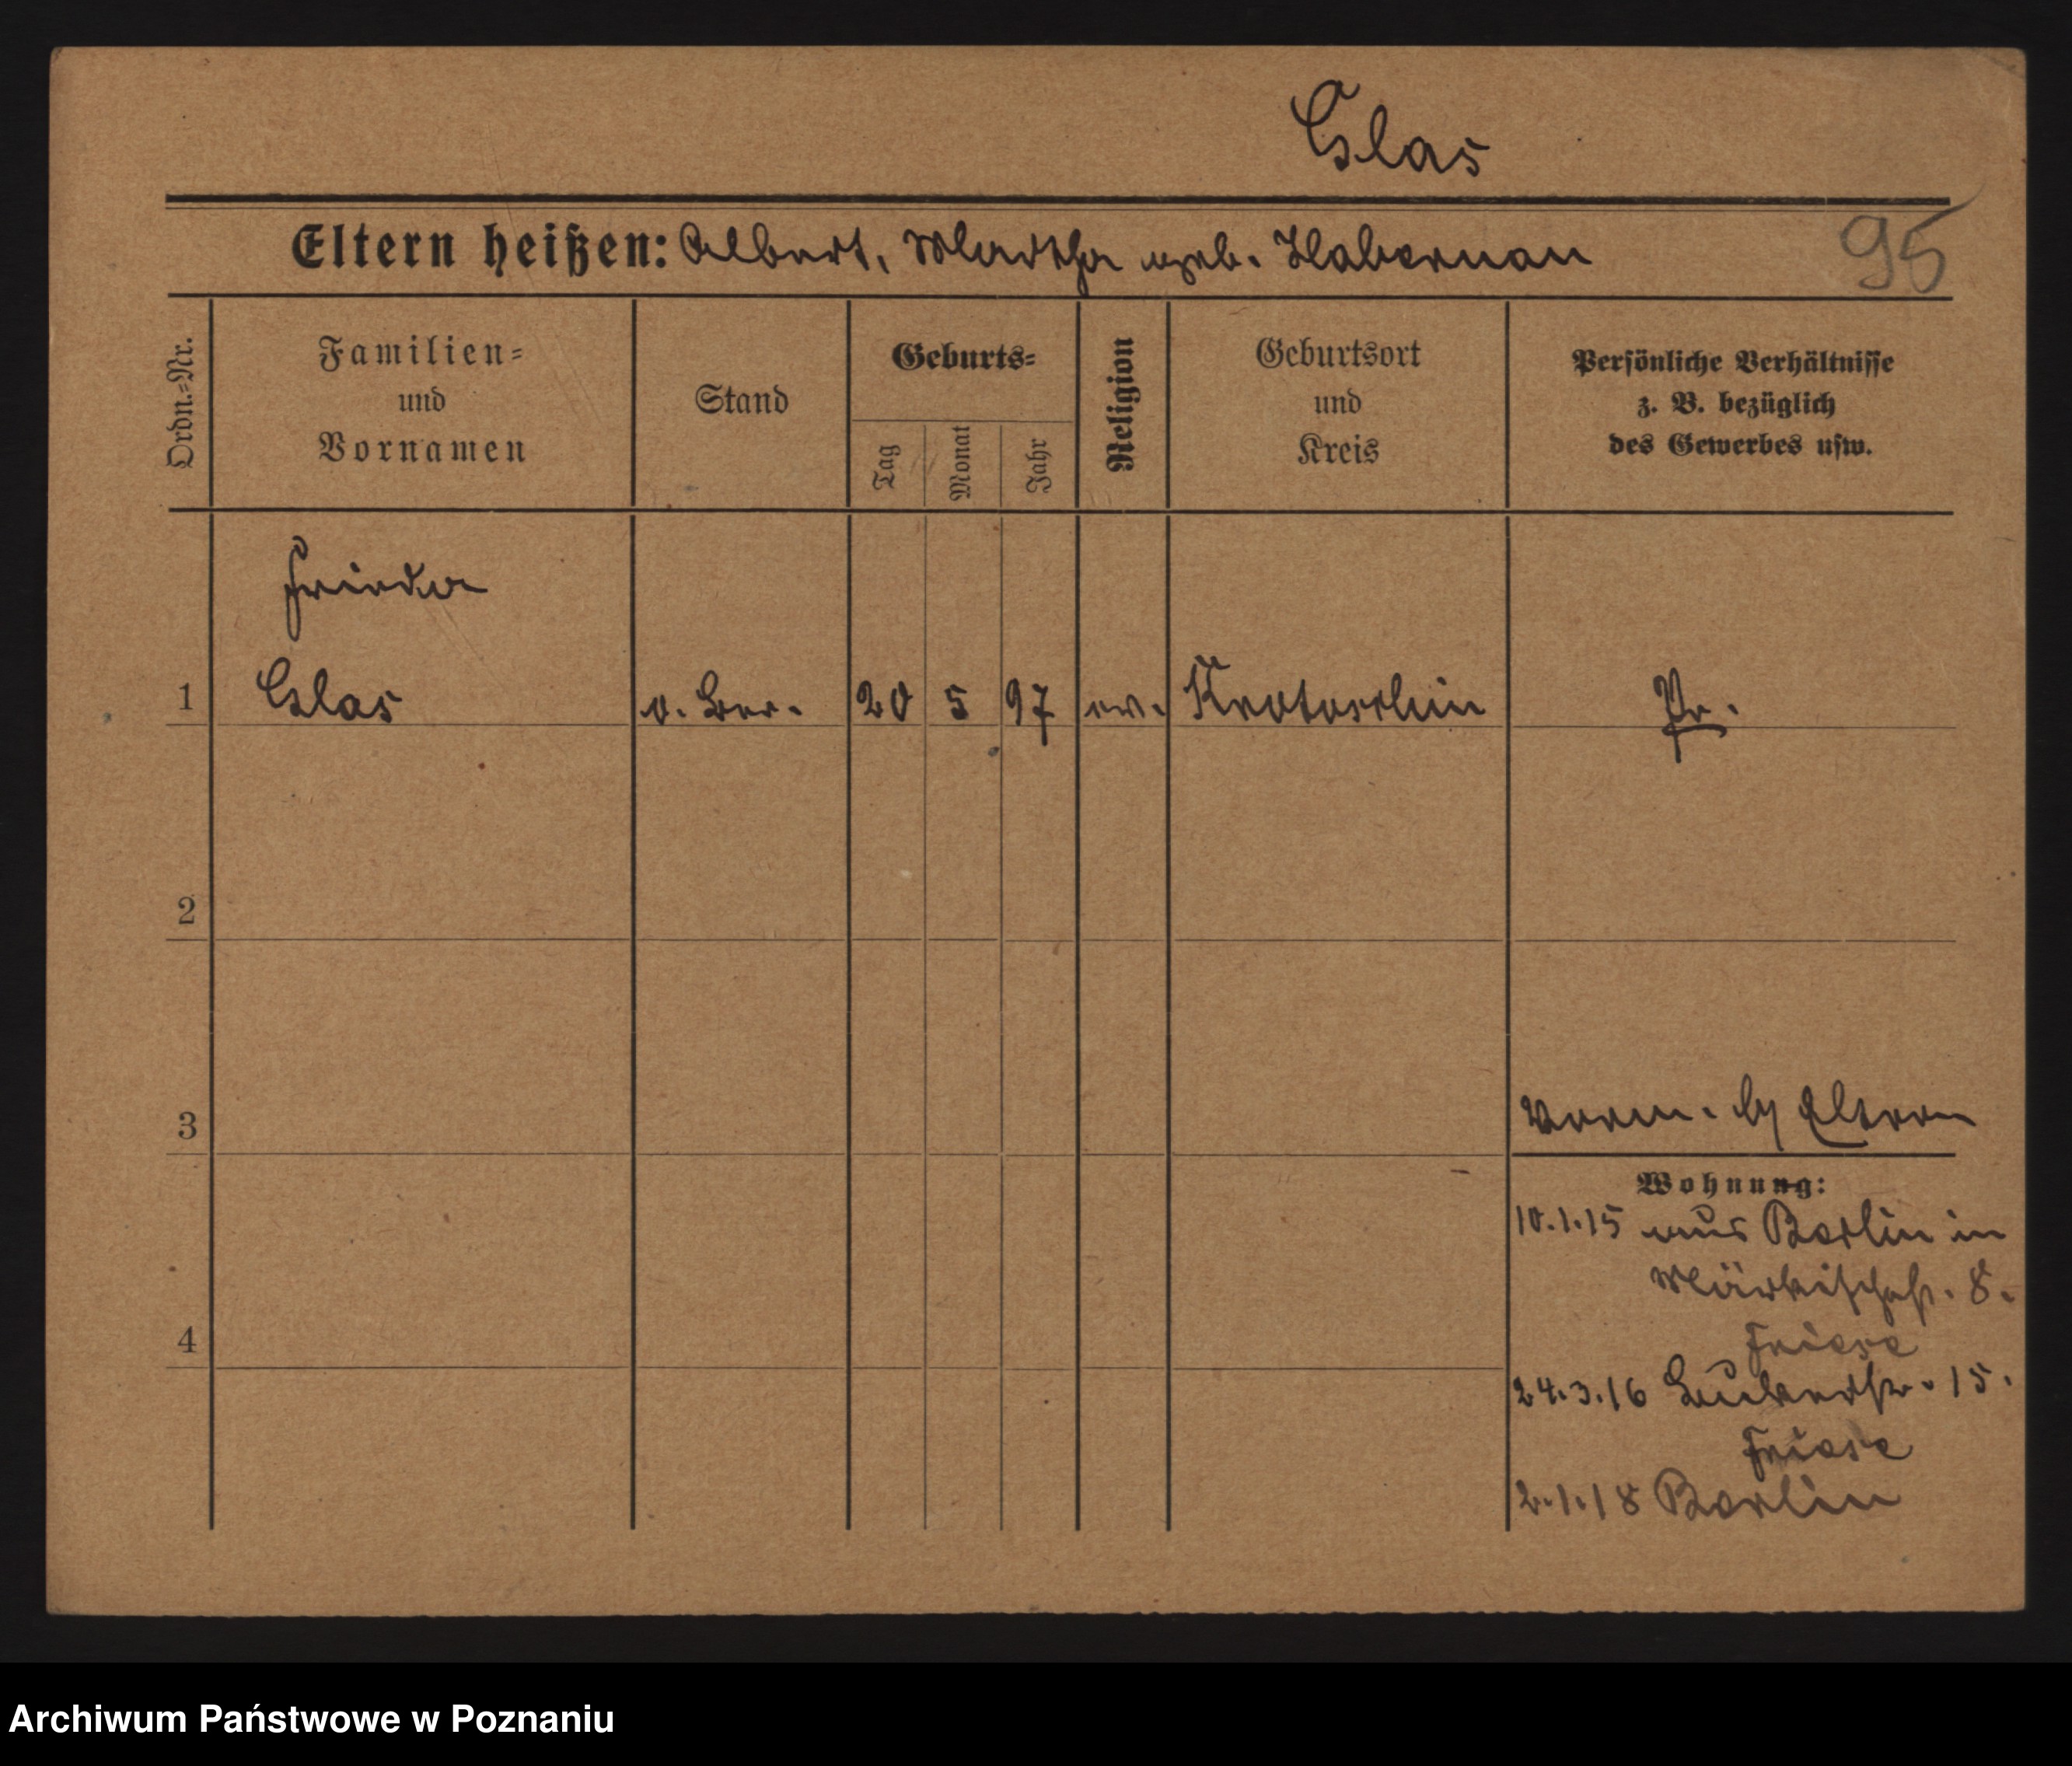 Glas
Eltern heißen: Albert, Martha geb. Habernan
95
Ordn.-Nr.
Familien-
und
Vornamen
Stand
Geburts-
Tag
Monat
Jahr
Religion
Geburtsort
und
Kreis
Persönliche Verhältnisse
z. B. bezüglich
des Gewerbes usw.
Frieda
1 Glas o. Ber. 20 5 97 ev. Krotoschin Pr.
2
3
Verm. b/ Eltern
Wohnung:
10.1.15 aus Berlin in
Märkischestr. 8.
Friese
4
24.3.16 15.
Friese
2.1.18 Berlin
Archiwum Państwowe w Poznaniu